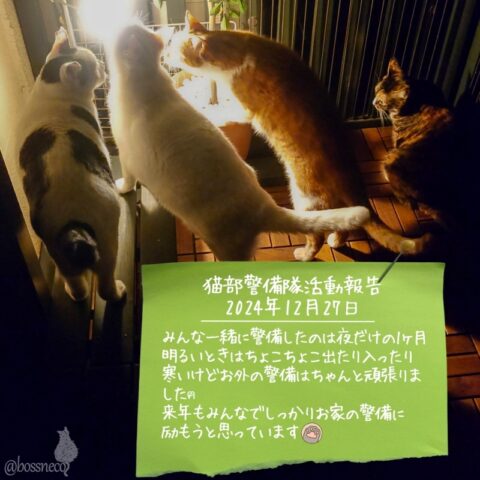 猫部警備隊活動報告
2024年12月27日
みんな一緒に警備したのは夜だけの1ヶ月
明るいときはちょこちょこ出たり入ったり
寒いけどお外の警備はちゃんと頑張りま
した🐾
来年もみんなでしっかりお家の警備に
励もうと思っています
@bossneco